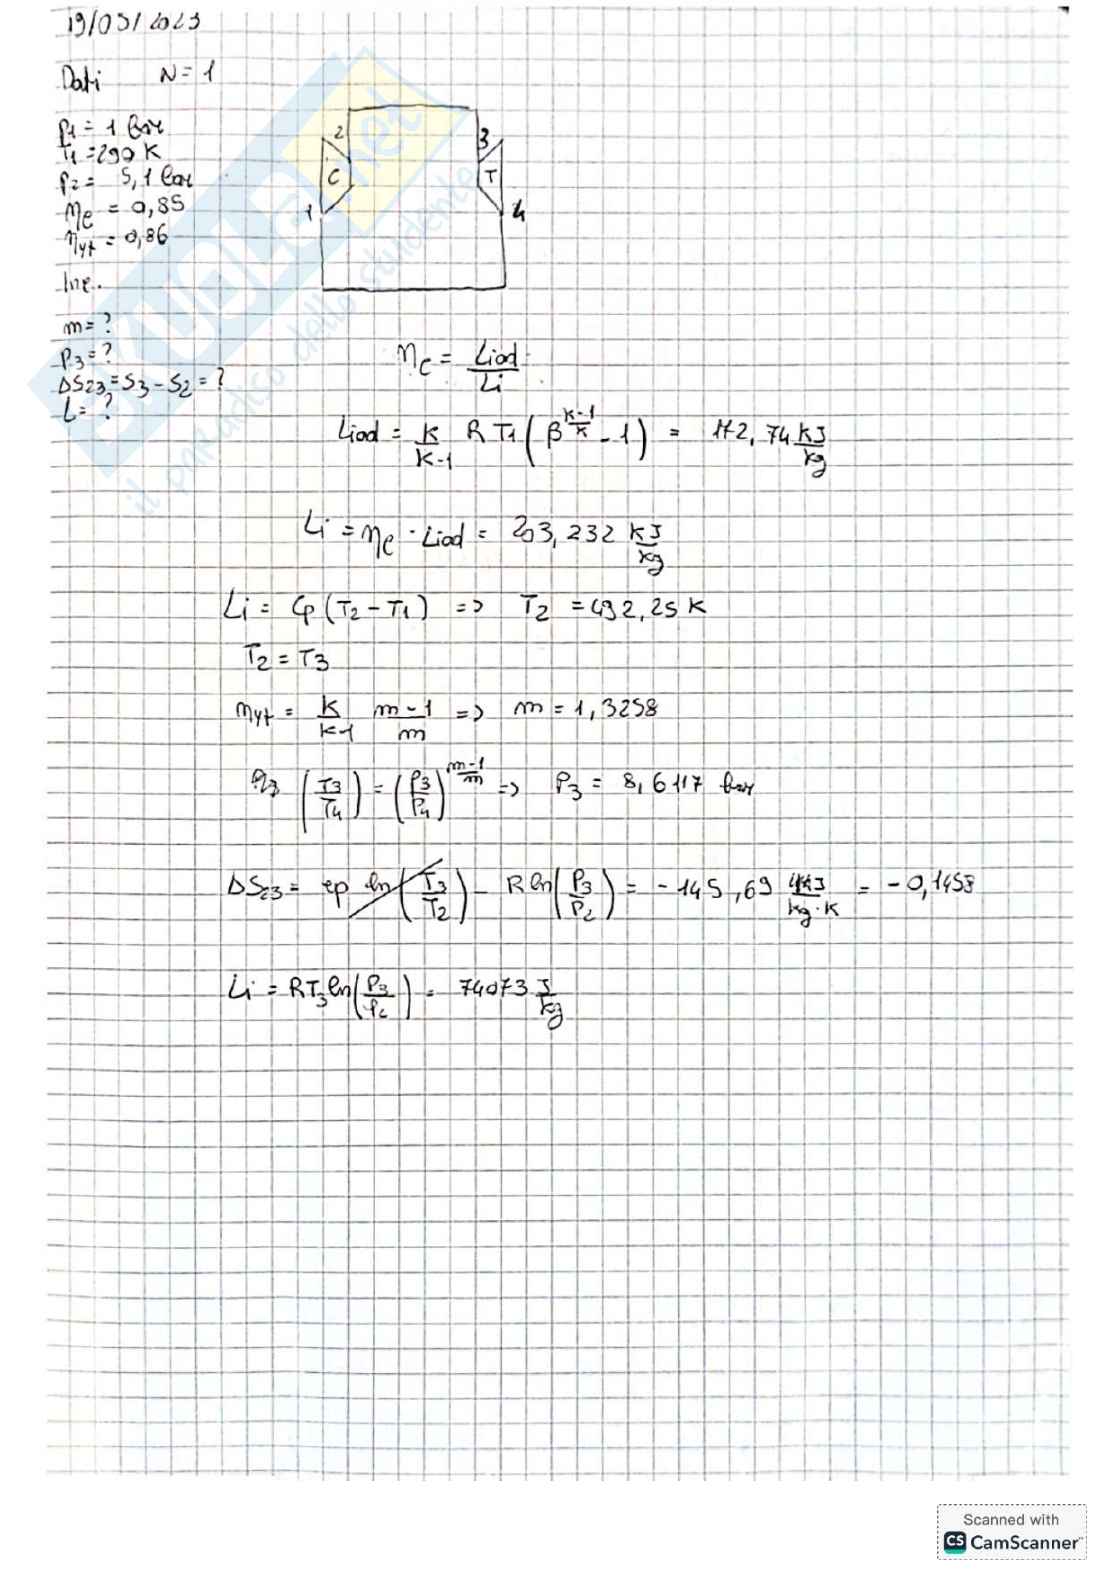 19/05/2023
Dati N = 1
P1 = 1 bar
T1 = 290 K
P2 = 5,1 bar
ηc = 0,85
ηyt = 0,86
Inc.
m = ?
P3 = ?
ΔS23 = S3 - S2 = ?
L = ?
2 3
C T
1 4
ηc = Liad / Li
Liad = k/(k-1) R T1 (β^((k-1)/k) - 1) = 172,74 kJ/kg
Li = ηc · Liad = 203,232 kJ/kg
Li = Cp (T2 - T1) => T2 = 492,25 K
T2 = T3
ηyt = k/(k-1) (m-1)/m => m = 1,3258
(T3/T4) = (P3/P4)^((m-1)/m) => P3 = 8,6117 bar
ΔS23 = cp ln (T3/T2) - R ln (P3/P2) = -145,69 kJ/(kg·K) = -0,1458
Li = R T3 ln (P3/P2) = 74073 J/kg
SKUOLA.net
il paradiso dello studente
Scanned with
CS CamScanner